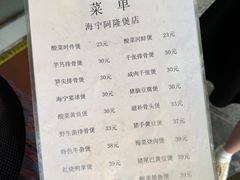 菜 单
海宁阿隆煲店
酸菜时件煲 23元 酸菜河鲜煲 23元
芋艿排骨煲 30元 千张排骨煲 30元
笋尖排骨煲 30元 咸肉千张煲 30元
海宁宴球煲 30元 猪脑豆腐煲 30元
酸菜黄鱼煲 30元 滋补骨头煲 33元
野生菌排骨煲 33元 猪手黄豆煲 35元
特色牛杂煲 35元 梅菜烧肉煲 35元
红烧鸭掌煲 39元 猪尾巴黄豆煲 39元